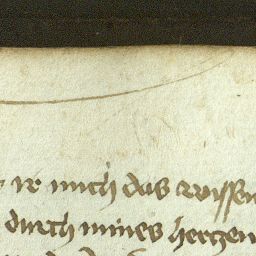 ir mich das wissen
durch mines hertzen